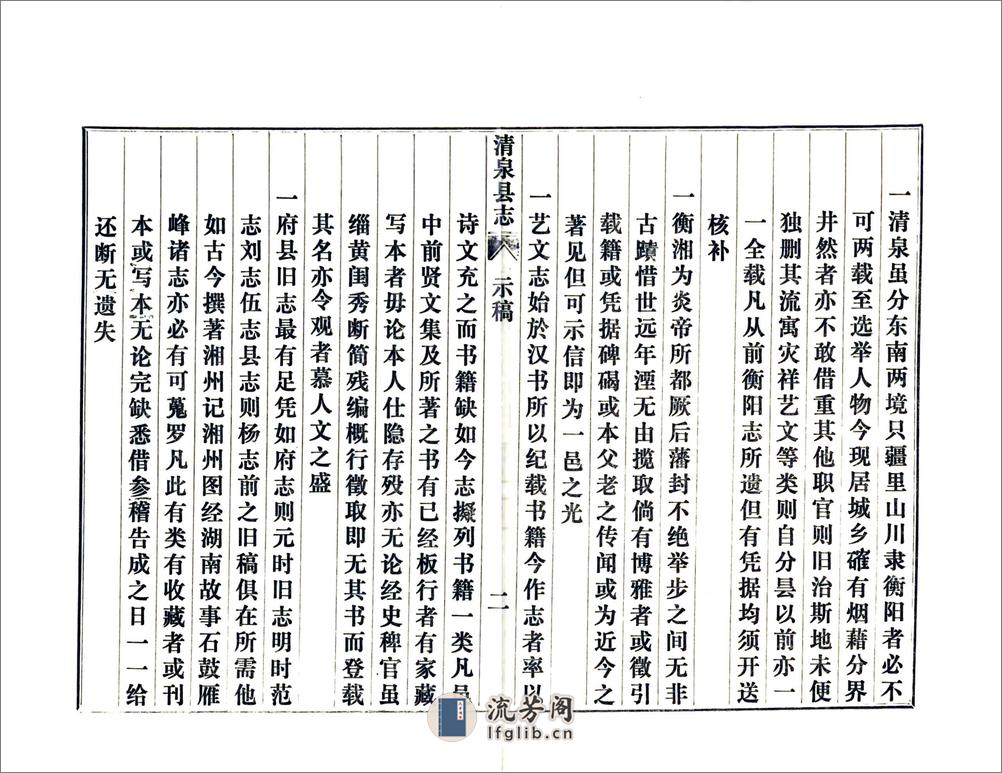 一清泉虽分东南两境只疆里山川隶衡阳者必不
可两载至选举人物今现居城乡確有烟藉分界
井然者亦不敢借重其他职官则旧治斯地未便
独删其流寓灾祥艺文等类则自分昙以前亦一
一全载凡从前衡阳志所遗但有凭据均须开送
核补
一衡湘为炎帝所都厥后藩封不绝举步之间无非
古蹟惜世远年湮无由揽取倘有博雅者或徵引
载籍或凭据碑碣或本父老之传闻或为近今之
著见但可示信即为一邑之光
一艺文志始於汉书所以纪载书籍今作志者率以
清泉县志 示稿 二
诗文充之而书籍缺如今志擬列书籍一类凡邑
中前贤文集及所著之书有已经板行者有家藏
写本者毋论本人仕隐存殁亦无论经史稗官虽
缁黄闺秀断简残编概行徵取即无其书而登载
其名亦令观者慕人文之盛
一府县旧志最有足凭如府志则元时旧志明时范
志刘志伍志县志则杨志前之旧稿俱在所需他
如古今撰著湘州记湘州图经湖南故事石鼓雁
峰诸志亦必有可蒐罗凡此有类有收藏者或刊
本或写本无论完缺悉借参稽告成之日一一给
还断无遗失
流芳阁
lfglib.cn